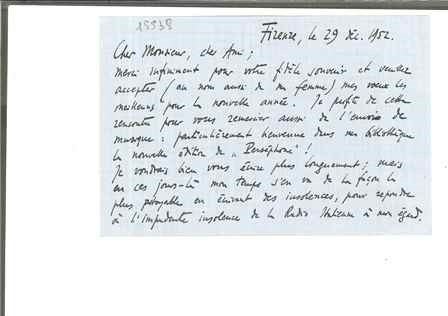 15938
Firenze, le 29 déc. 1952.
Cher Monsieur, cher Ami,
merci infiniment pour votre fidèle souvenir et veuillez
accepter (au nom aussi de ma femme) mes vœux les
meilleurs pour la nouvelle année. Je profite de cette
rencontre pour vous remercier aussi de l'envoi de
musique: particulièrement bienvenue dans ma bibliothèque
la nouvelle édition de „Perséphone"!
Je voudrais bien vous écrire plus longuement; mais
en ces jours-là mon temps s'en va de la façon la
plus pitoyable en écrivant des insolences, pour répondre
à l'impudente insolence de la Radio Italienne à mon égard.